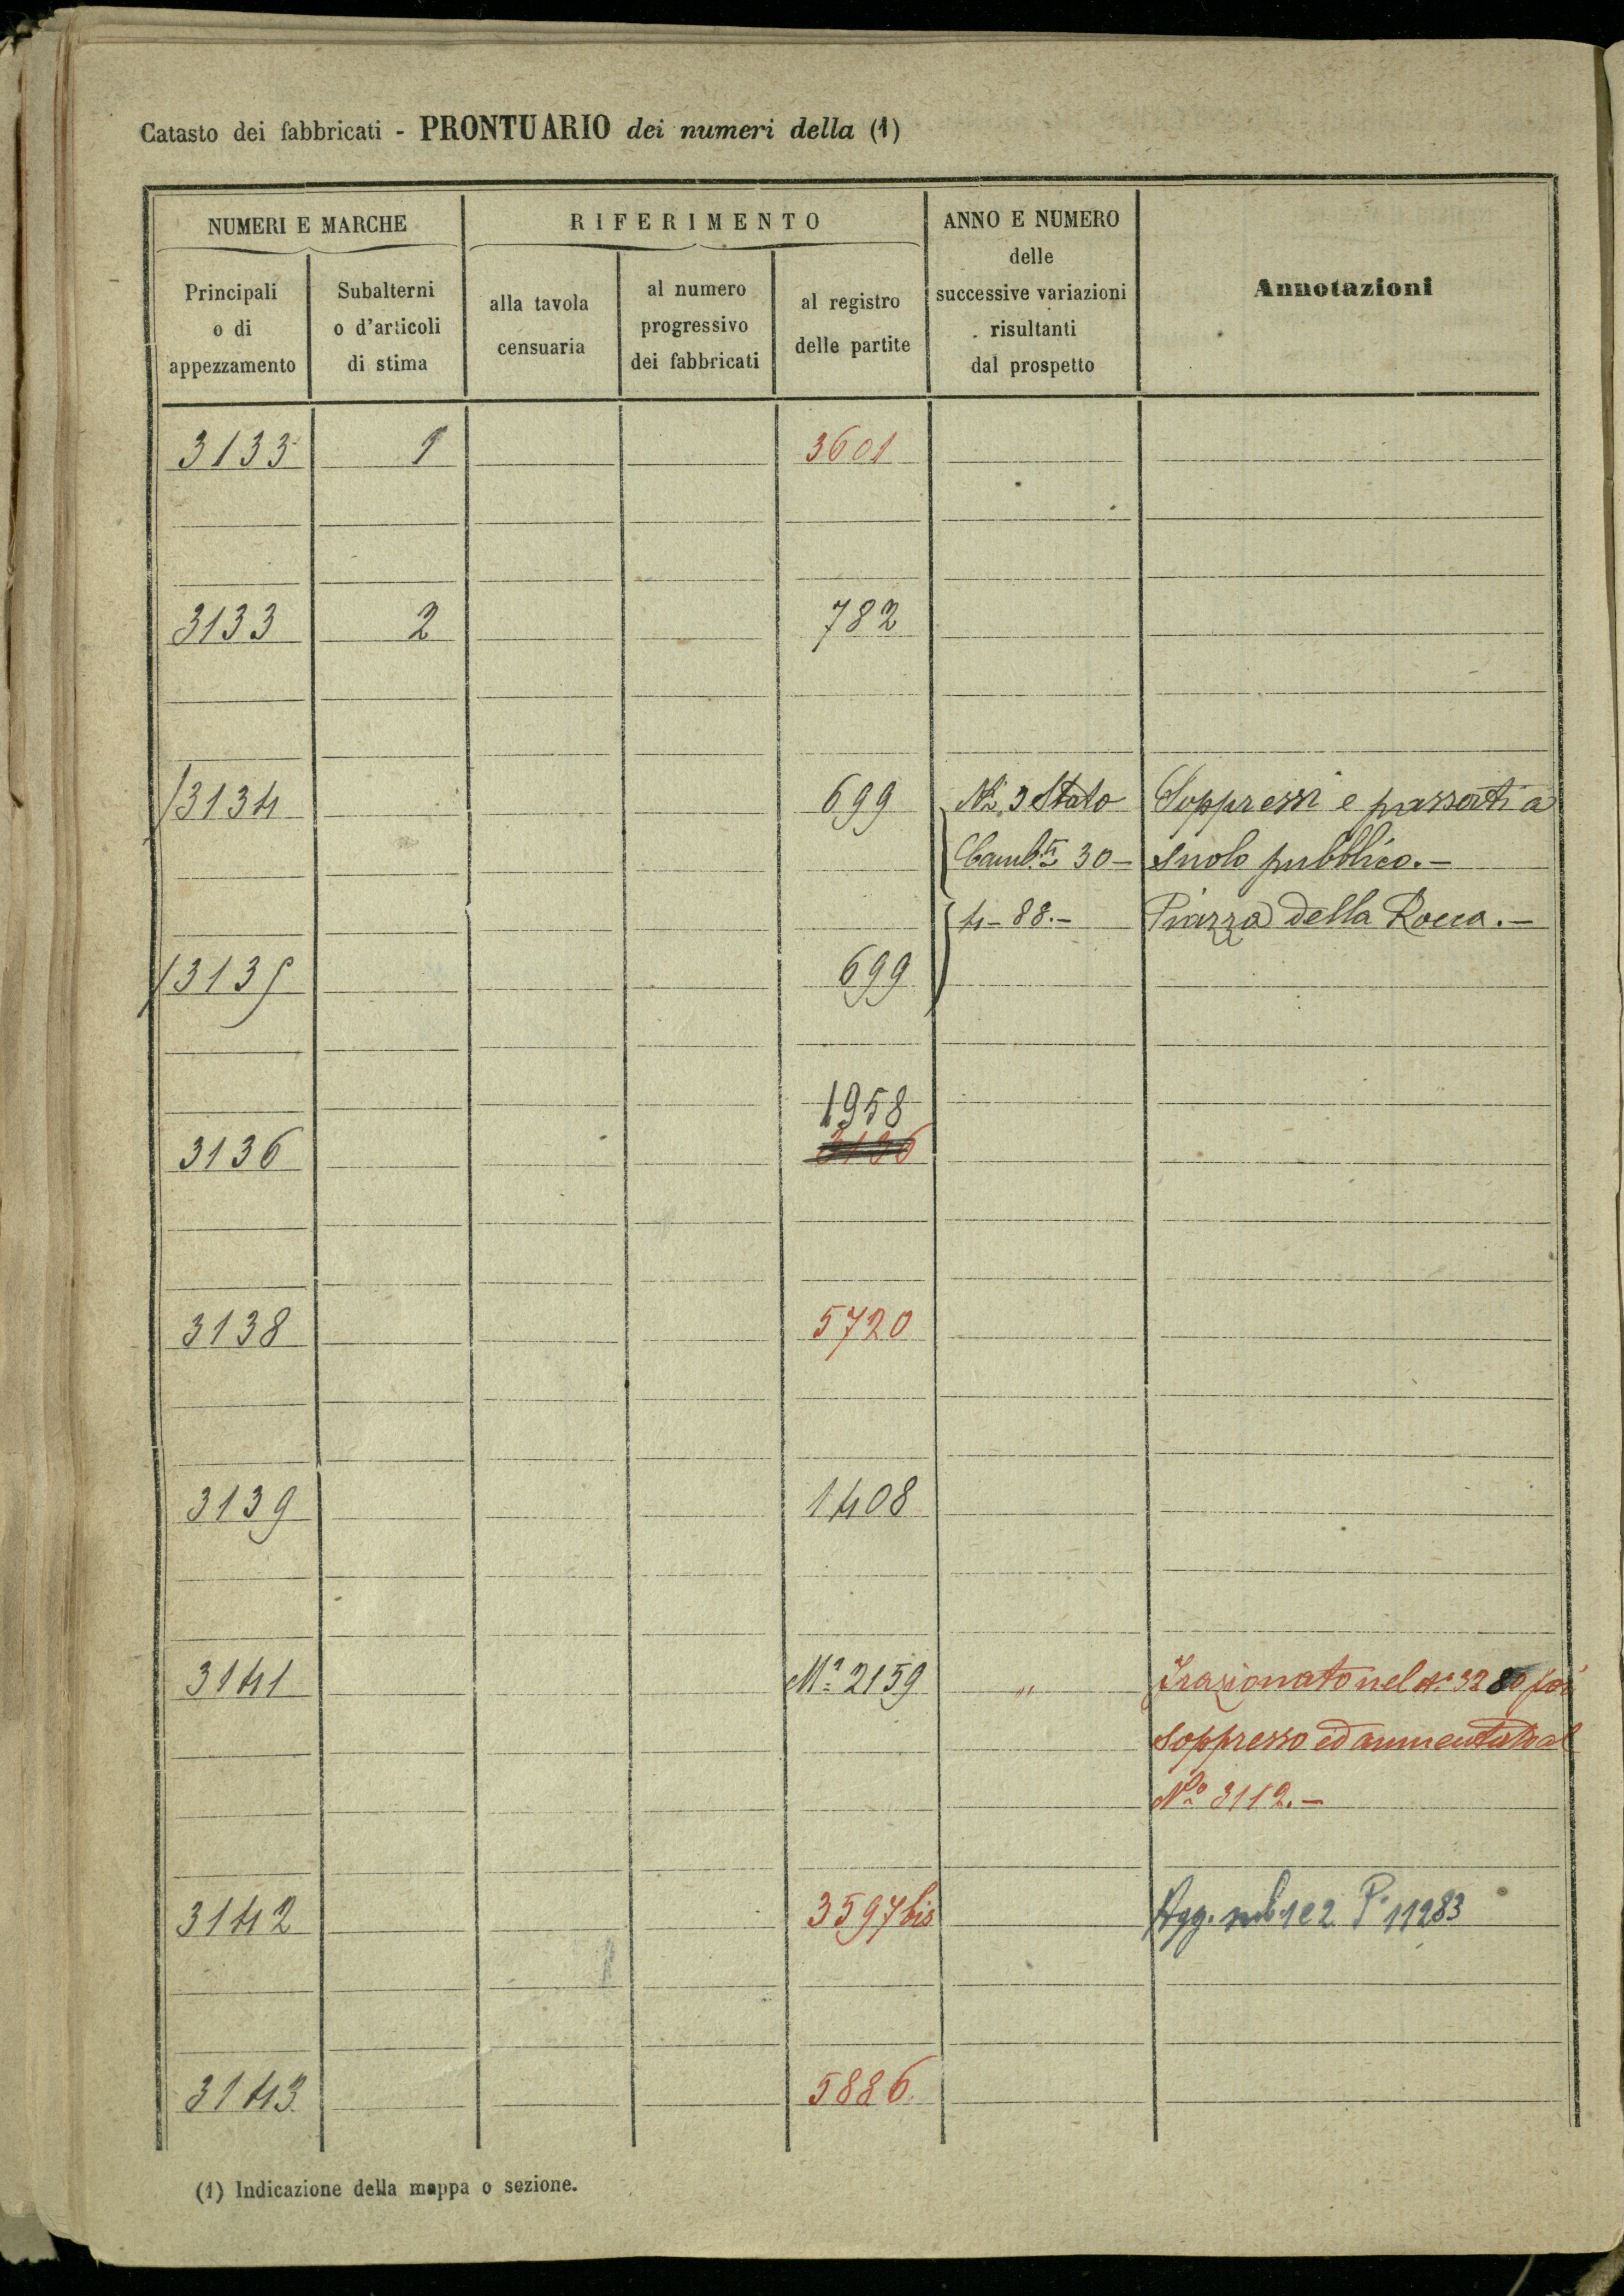 Catasto dei fabbricati - PRONTUARIO dei numeri della (1)
NUMERI E MARCHE
RIFERIMENTO
ANNO E NUMERO
delle
successive variazioni
risultanti
dal prospetto
Annotazioni
Principali
o di
appezzamento
Subalterni
o d'articoli
di stima
alla tavola
censuaria
al numero
progressivo
dei fabbricati
al registro
delle partite
3133 1 3601
3133 2 782
3134 699 N. 3 Stato Soppressi e passati a
Camb.ti 30- suolo pubblico.-
4-88.- Piazza della Rocca.-
3135 699
1958
3136 3136
3138 5720
3139 1408
3141 Ma 2159 " Frazionato nel N. 3280 poi
soppresso ed aumentato al
No 3112.-
3142 3597 bis Agg. sub. 1 e 2 P. 11283
3143 5886
(1) Indicazione della mappa o sezione.